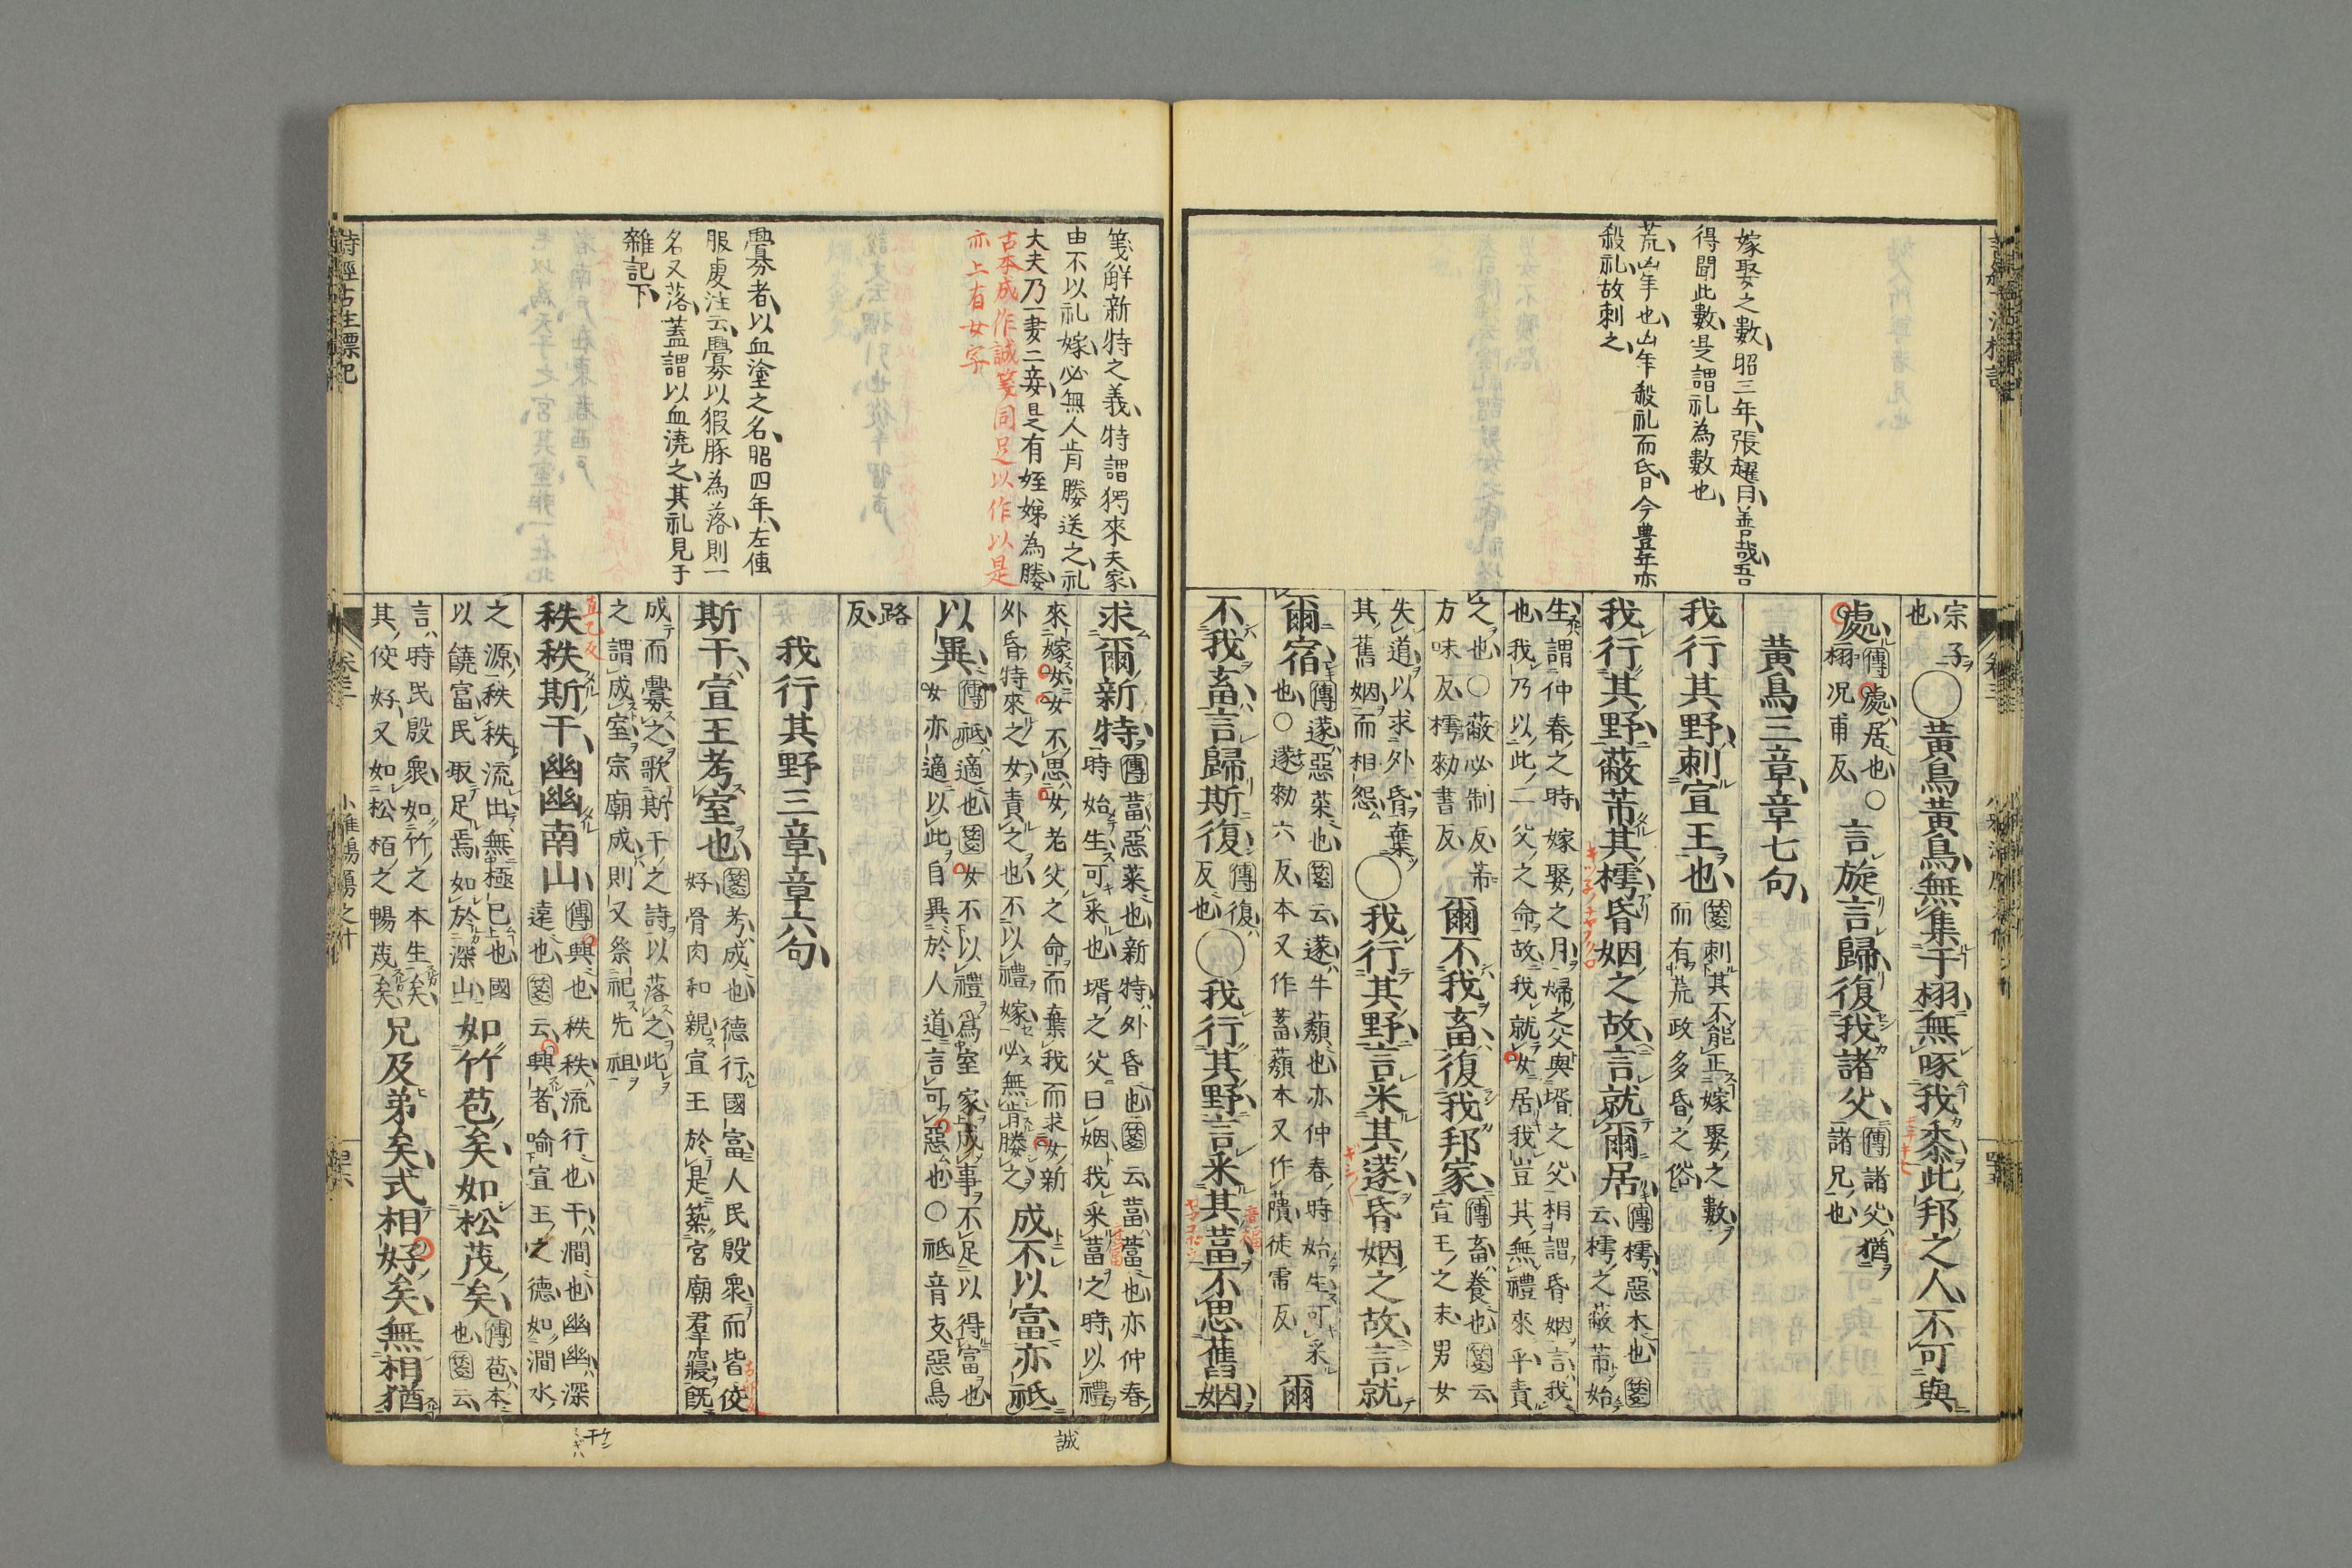 嫁娶之數昭三年張趯曰善哉吾
得聞此數是謂礼為數也
荒凶年也凶年殺礼而昏今豊年亦
殺礼故刺之
宗子
也
○黃鳥黃鳥無集于栩無啄我黍此邦之人不可與
處
傳處居也○
栩况甫反
言旋言歸復我諸父
傳諸父猶
諸兄也
黃鳥三章章七句
我行其野刺宣王也
箋刺其不能正嫁娶之數
而有荒政多昏之俗
我行其野蔽芾其樗昏姻之故言就爾居
傳樗惡木也箋
云樗之蔽芾始
生謂仲春之時嫁娶之月婦之父與壻之父相謂昏姻言我
也我乃以此二父之命故我就女居我豈其無禮來乎責
之也○蔽必制反芾
方味反樗勑書反
爾不我畜復我邦家
傳畜養也箋云
宣王之末男女
失道以求外昏棄
其舊姻而相怨
○我行其野言采其蓫昏姻之故言就
爾宿
傳蓫惡菜也箋云蓫牛蘈也亦仲春時始生可采
也○蓫勑六反本又作蓄蘈本又作隤徒雷反
爾
不我畜言歸斯復
傳復
反也
○我行其野言采其葍不思舊姻
箋觧新特之義特謂獨來夫家
由不以礼嫁必無人肯媵送之礼
大夫乃一妻二妾是有姪娣為媵
古本成作誠箋同足以作以是
亦上有女字
釁者以血塗之名昭四年左傳
服虔注云釁以豭豚為落則一
名又落蓋謂以血澆之其礼見于
雜記下
求爾新特
傳葍惡菜也新特外昏也箋云葍䔰也亦仲春
時始生可采也壻之父曰姻我采葍之時以禮
來嫁女女不思女老父之命而棄我而求女新
外昏特來之女責之也不以禮嫁必無肯媵之
成不以富亦祗
以異
傳祗適也箋女不以禮爲室家成事不足以得富也
女亦適以此自異於人道言可惡也○祗音支惡烏
路
反
我行其野三章章六句
斯干宣王考室也
箋考成也德行國富人民殷衆而皆佼
好骨肉和親宣王於是築宮廟羣寢旣
成而釁之歌斯干之詩以落之此
之謂成室宗廟成則又祭祀先祖
秩秩斯干幽幽南山
傳興也秩秩流行也干澗也幽幽深
遠也箋云興者喻宣王之德如澗水
之源秩秩流出無極已也國
以饒富民取足焉如於深山
如竹苞矣如松茂矣
傳苞本
也箋云
言時民殷衆如竹之本生矣
其佼好又如松栢之暢茂矣
兄及弟矣式相好矣無相猶
誠